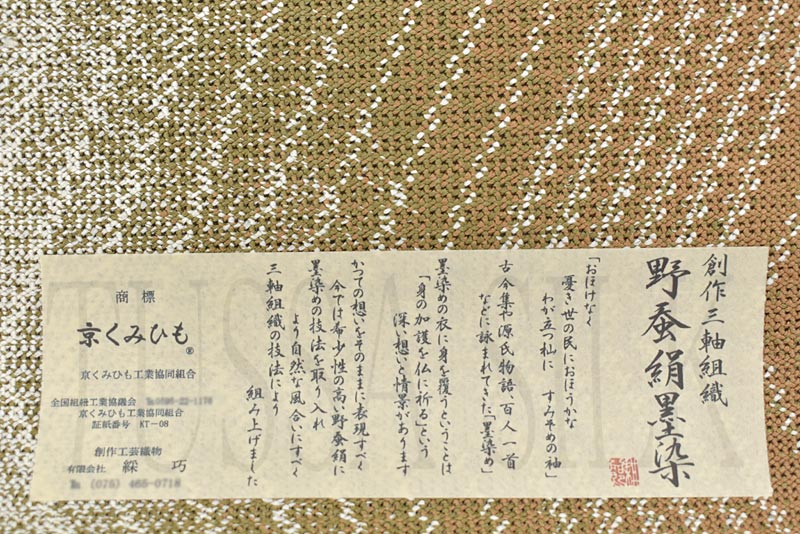 創作三軸組織
野蚕絹墨染
「おほけなく
憂き世の民におほうかな
わが立つ杣に すみぞめの袖」
古今集や源氏物語、百人一首
などに詠まれてきた「墨染め」
墨染めの衣に身を覆うということは
「身の加護を仏に祈る」という
深い想いと情景があります
かつての想いをそのままに表現すべく
今では希少性の高い野蚕絹に
墨染めの技法を取り入れ
より自然な風合いにすべく
三軸組織の技法により
組み上げました
商標
京くみひも®
京くみひも工業協同組合
全国組紐工業協議会
京くみひも工業協同組合
証紙番号 KT-08
創作工芸織物
有限会社 綵巧
℡ (075) 465-0718
TUSSAH